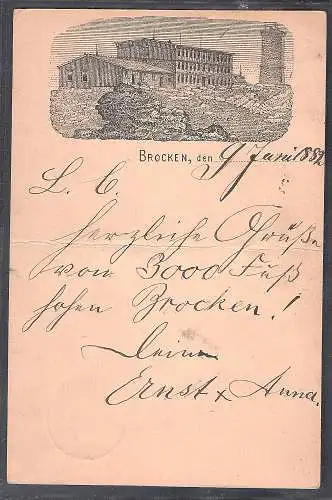 BROCKEN, den 9 Juni 1882
L. C.
herzliche Grüße
vom 3000 Fuß
hohen Brocken!
Deine
Ernst & Anna.